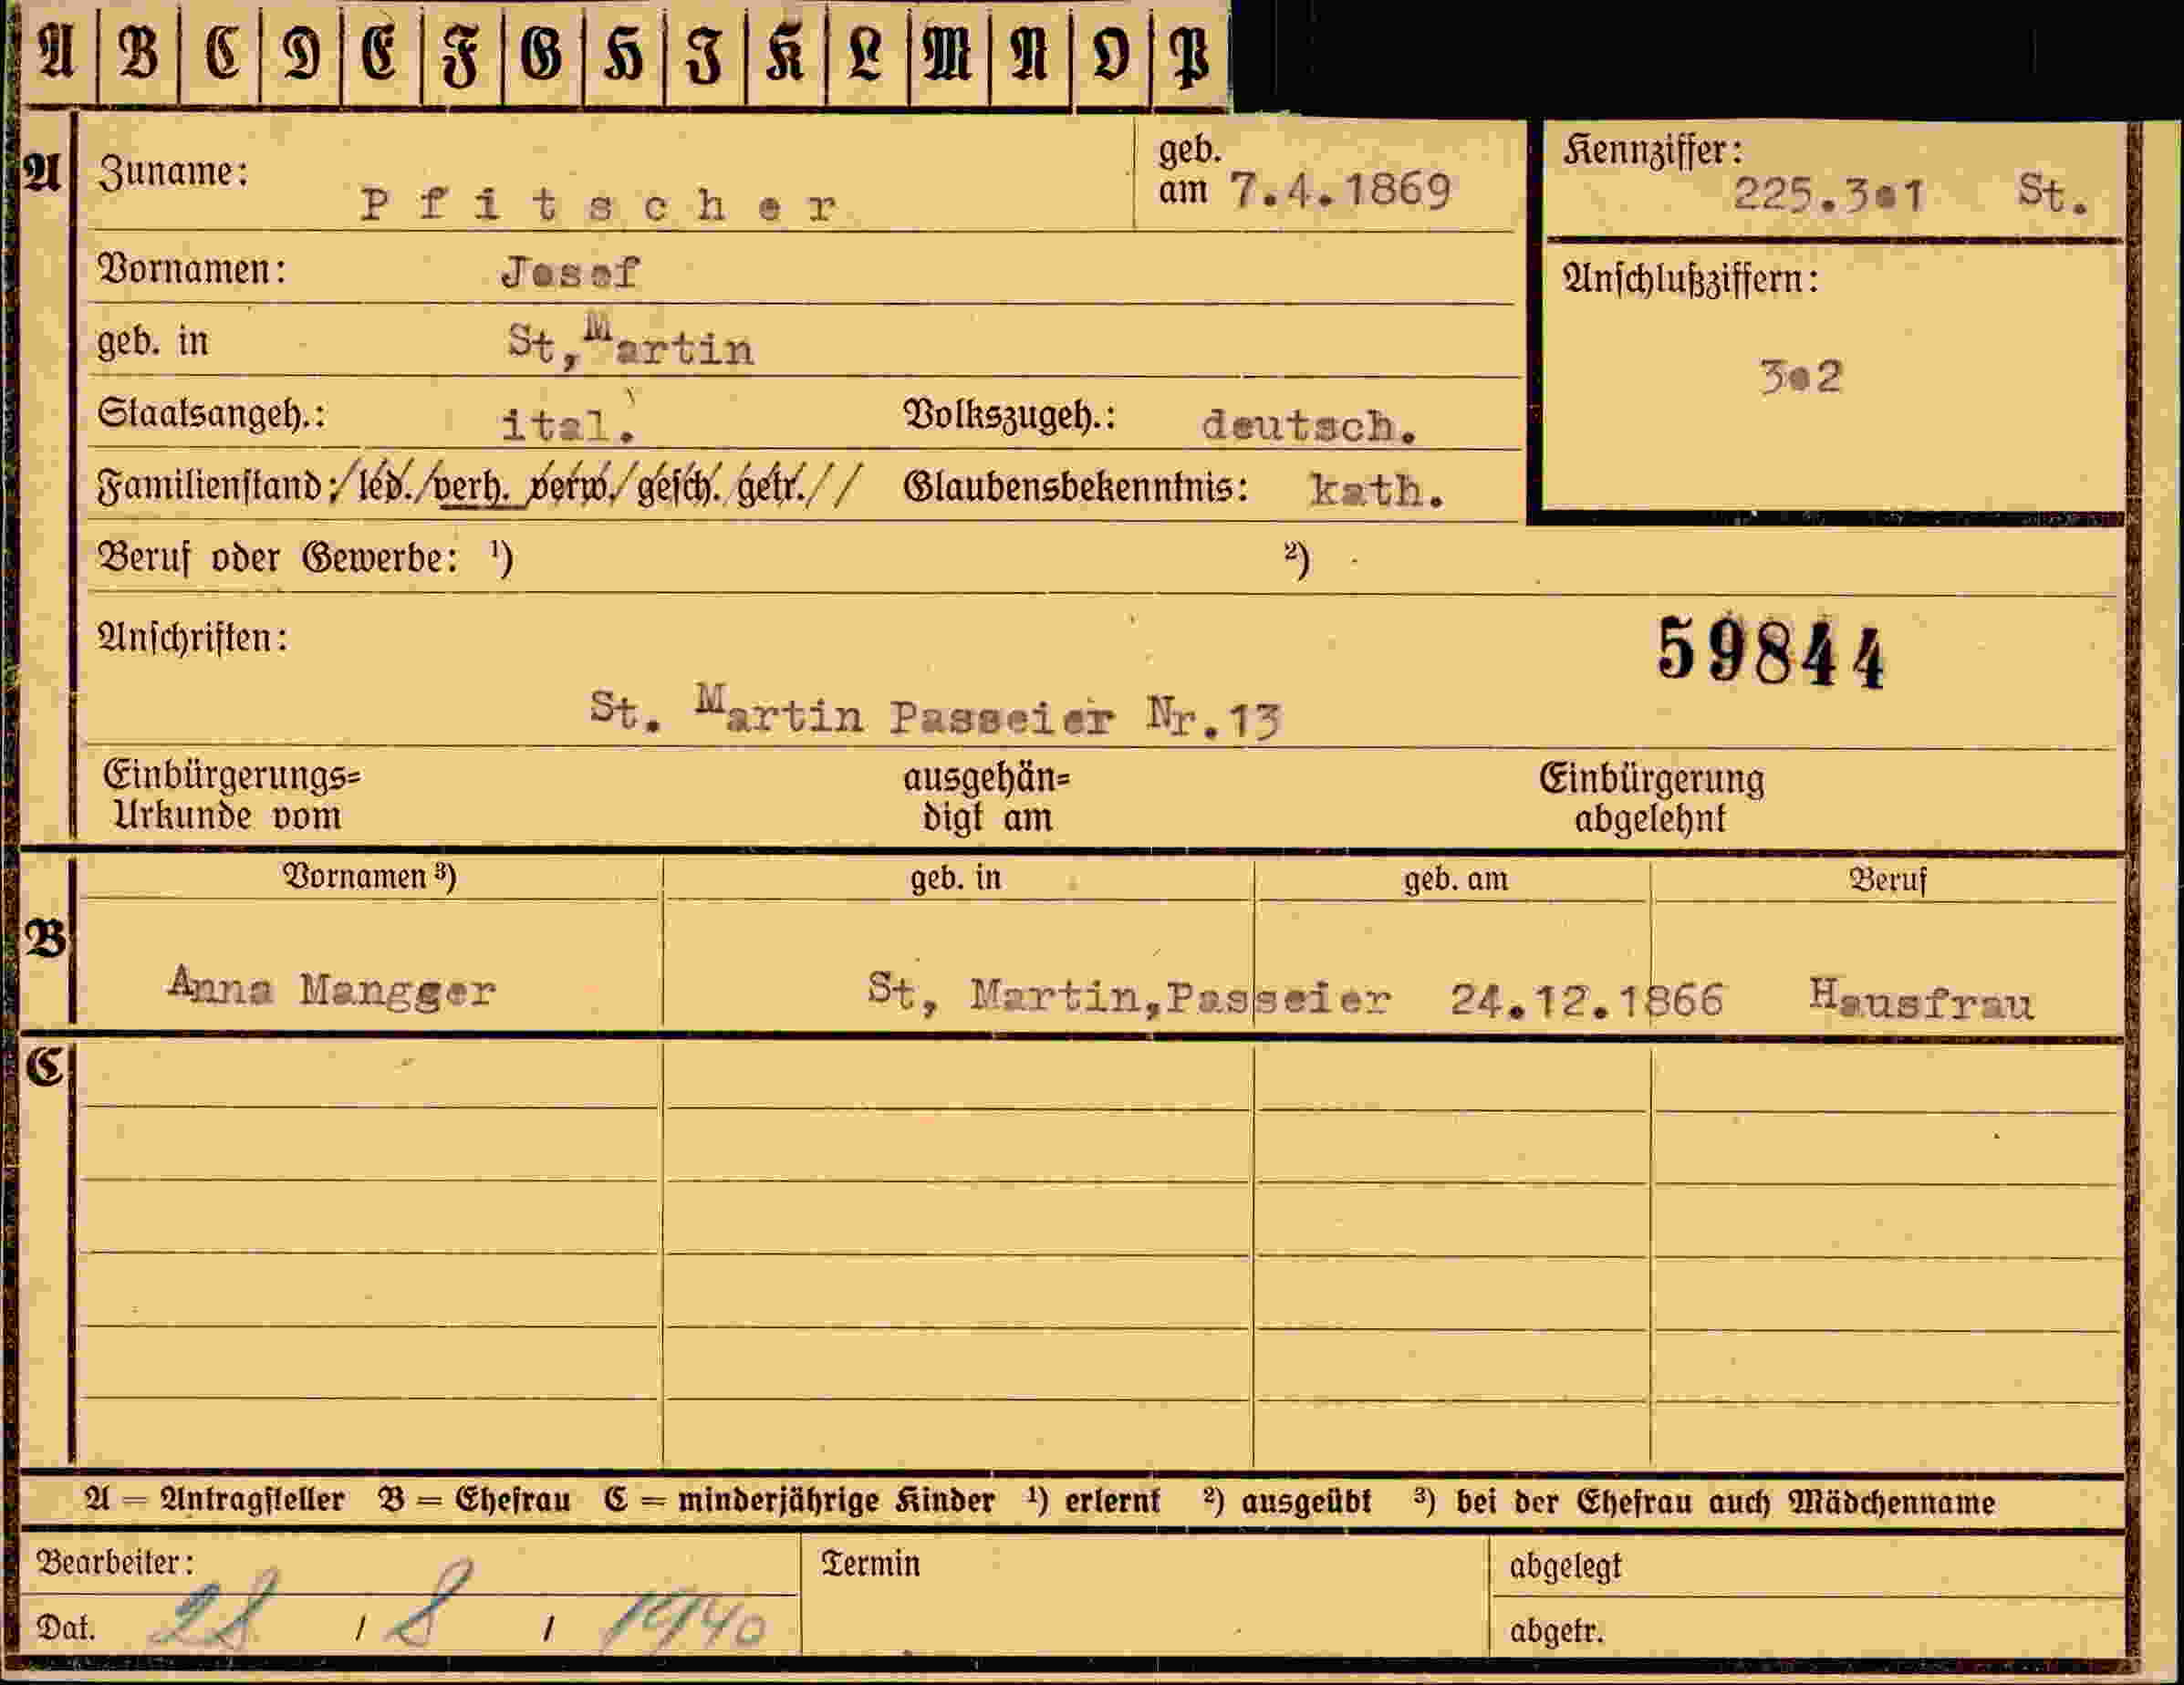 A B C D E F G H I K L M N O P
A Zuname: Pfitscher geb. am 7.4.1869 Kennziffer: 225.3o1 St.
Vornamen: Josef Anschlußziffern:
geb. in St,Martin 3o2
Staatsangeh.: ital. Volkszugeh.: deutsch.
Familienstand:/led./verh. verw./gesch./getr.// Glaubensbekenntnis: kath.
Beruf oder Gewerbe: ¹) ²)
Anschriften: 59844
St. Martin Passeier Nr.13
Einbürgerungs= ausgehän= Einbürgerung
Urkunde vom digt am abgelehnt
Vornamen ³) geb. in geb. am Beruf
B
Anna Mangger St, Martin,Passeier 24.12.1866 Hausfrau
C
A = Antragsteller B = Ehefrau C = minderjährige Kinder ¹) erlernt ²) ausgeübt ³) bei der Ehefrau auch Mädchenname
Bearbeiter: Termin abgelegt
Dat. 28 / 8 / 1940 abgetr.